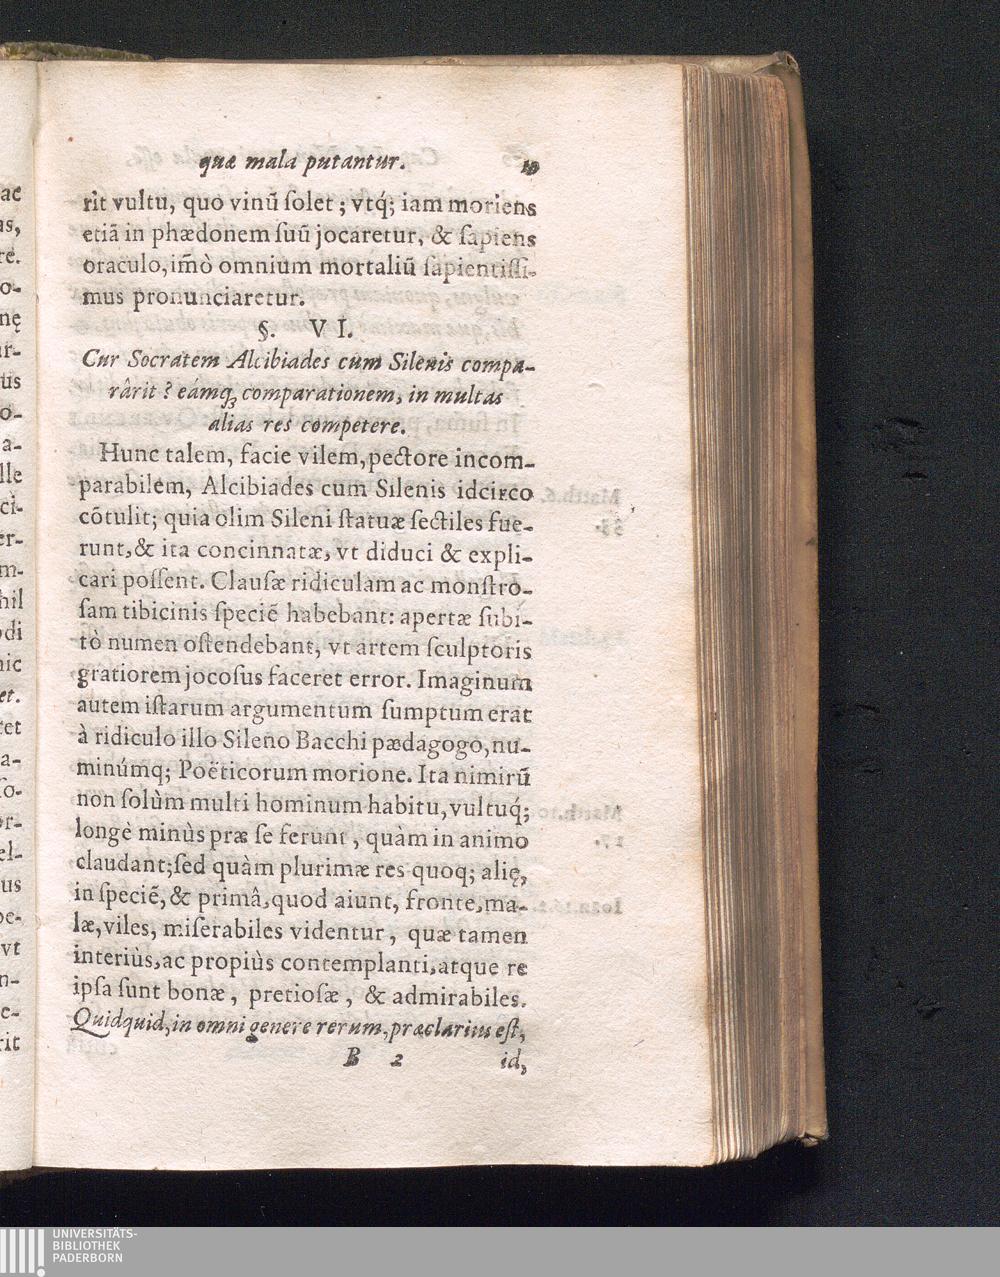 quæ mala putantur. 19
rit vultu, quo vinũ ſolet; vtq́; iam moriens
etiã in phædonem ſuũ jocaretur, & ſapiens
oraculo, im̃ò omnium mortaliũ ſapientiſſi-
mus pronunciaretur.
§. VI.
Cur Socratem Alcibiades cum Silenis compa-
rârit? eámq; comparationem, in multas
alias res competere.
Hunc talem, facie vilem, pectore incom-
parabilem, Alcibiades cum Silenis idcirco
cõtulit; quia olim Sileni ſtatuæ ſectiles fue-
runt, & ita concinnatæ, vt diduci & expli-
cari poſſent. Clauſæ ridiculam ac monſtro-
ſam tibicinis ſpeciẽ habebant: apertæ ſubi-
tò numen oſtendebant, vt artem ſculptoris
gratiorem jocoſus faceret error. Imaginum
autem iſtarum argumentum ſumptum erat
à ridiculo illo Sileno Bacchi pædagogo, nu-
minúmq; Poëticorum morione. Ita nimirũ
non ſolùm multi hominum habitu, vultuq́;
longè minùs præ ſe ferunt, quàm in animo
claudant; ſed quàm plurimæ res quoq; alię,
in ſpeciẽ, & primâ, quod aiunt, fronte, ma-
læ, viles, miſerabiles videntur, quæ tamen
interiùs, ac propiùs contemplanti, atque re
ipſa ſunt bonæ, pretioſæ, & admirabiles.
Quidquid, in omni genere rerum, præclarius eſt,
B 2 id,
UNIVERSITÄTS-
BIBLIOTHEK
PADERBORN